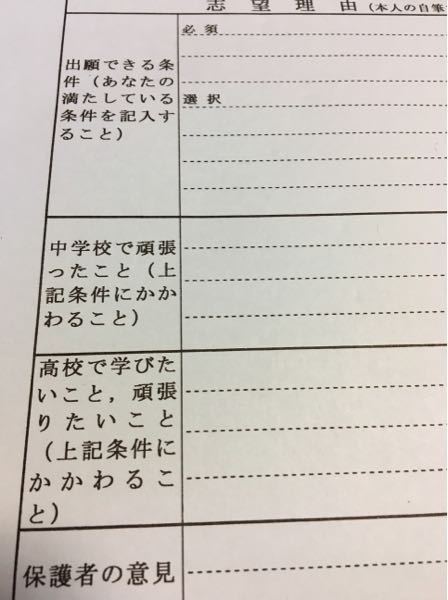 志望理由（本人の自筆
必須
出願できる条
件（あなたの
満たしている
選択
条件を記入す
ること）
中学校で頑張
ったこと（上
記条件にかか
わること）
高校で学びた
いこと，頑張
りたいこと
（上記条件に
かかわるこ
と）
保護者の意見